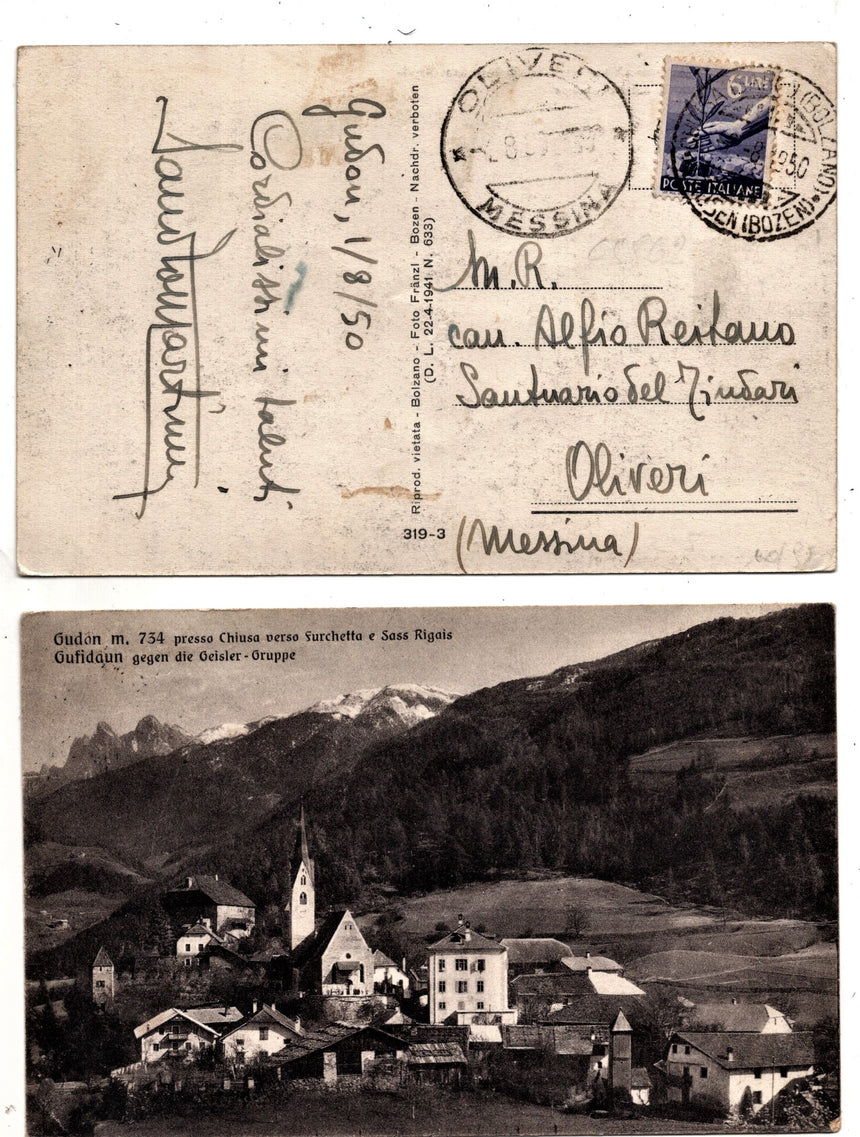 Gudon, 1/8/50
Cordialissimi saluti
Riprod. vietata - Bolzano - Foto Fränzl - Bozen - Nachdr. verboten
(D. L. 22-4-1941 N. 633)
319-3
OLIVERI
MESSINA
6 LIRE
POSTE ITALIANE
(BOLZANO)
(BOZEN)
M. R.
can. Alfio Reitano
Santuario del Tindari
Oliveri
(Messina)
Gudon m. 734 presso Chiusa verso Furchetta e Sass Rigais
Gufidaun gegen die Geisler-Gruppe